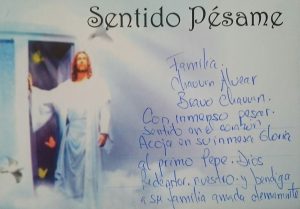 Sentido Pésame
Familia.
Chauvin Alvear
Bravo Chauvin.
Con inmenso pesar.
sentido en el
Acoja en su inmensa Gloria
al primo Pepe. Dios
redentor, nuestro y bendiga
a su familia amada eternamente